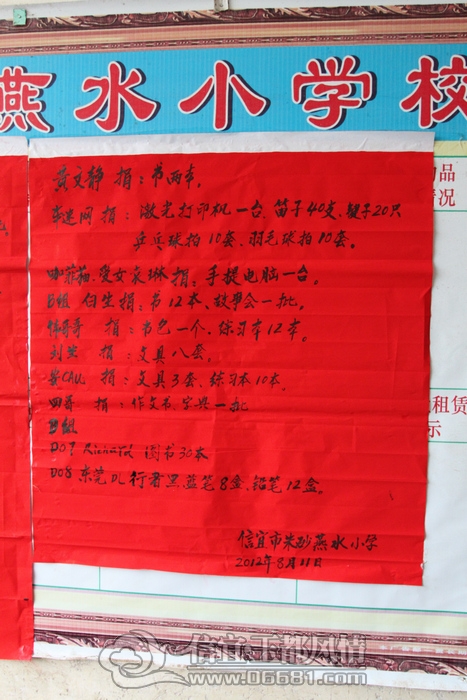 燕水小学校
物品
情况
黄文静 捐：书两本，
迷网捐：激光打印机一台、笛子40支、毽子20只
乒乓球拍10套、羽毛球拍10套。
咖菲猫、爱女哀琳捐：手提电脑一台。
B组 白生捐：书12本、故事会一批。
哥哥 捐：书包一个、练习本12本。
捐：文具八套，
CAU 捐：文具3套、练习本10本。
四哥 捐：作文书、字典一批
B组
D07 Richard 图书30本
D08 东莞DL行者黑、蓝笔8盒、铅笔12盒。
租赁
示
信宜市朱砂燕水小学
2012年8月11日
信宜玉都风情
www.06681.com